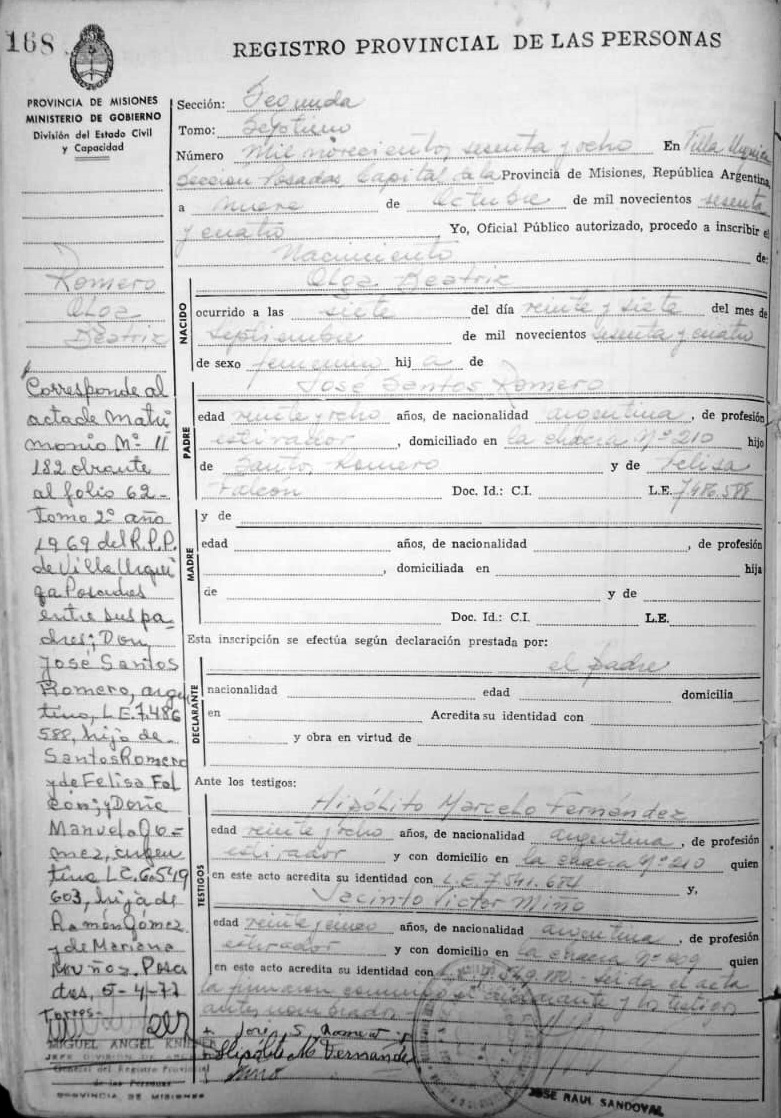 168
REGISTRO PROVINCIAL DE LAS PERSONAS
PROVINCIA DE MISIONES
MINISTERIO DE GOBIERNO
División del Estado Civil
y Capacidad
Romero
Olga
Beatriz
Corresponde al
acta de matri
monio Nº 11
182 obrante
al folio 62-
Tomo 2º año
1969 del R.P.P.
de Villa Urqui
za Posadas
entre sus pa-
dres; Don
José Santos
Romero, argen
tino, L.E. 7.486
588, hijo de
Santos Romero
y de Felisa Fal
cón; y Doña
Manuela Gó=
mez, argen
tina L.C. 6.549
603, hija de
Ramón Gómez
y de Mariana
Muñoz. Posa
das, 5-4-77
Torres-
MIGUEL ANGEL
JEFE DIVISION DE
General del Registro Provincial
de las Personas
PROVINCIA DE MISIONES
Sección: Segunda
Tomo: Septimo
Número Mil novecientos sesenta y ocho En Villa Urquiza
Seccion Posadas, Capital de la Provincia de Misiones, República Argentina,
a nueve de Octubre de mil novecientos sesenta
y cuatro Yo, Oficial Público autorizado, procedo a inscribir el
Nacimiento de:
NACIDO
Olga Beatriz
ocurrido a las siete del día veinte y siete del mes de
Septiembre de mil novecientos sesenta y cuatro
de sexo femenino hij a de
PADRE
José Santos Romero
edad veinte y ocho años, de nacionalidad argentina, de profesión
estirador, domiciliado en la chacra Nº 210 hijo
de Santos Romero y de Felisa
Falcón Doc. Id.: C.I. L.E. 7.486.588
MADRE
y de
edad años, de nacionalidad , de profesión
, domiciliada en hija
de y de
Doc. Id.: C.I. L.E.
Esta inscripción se efectúa según declaración prestada por:
DECLARANTE
el padre
nacionalidad edad domicilia
en Acredita su identidad con
y obra en virtud de
Ante los testigos:
TESTIGOS
Hipólito Marcelo Fernández
edad veinte y ocho años, de nacionalidad argentina, de profesión
estirador y con domicilio en la chacra Nº 210 quien
en este acto acredita su identidad con L.E. 7.541.654 y,
Jacinto Victor Miño
edad veinte y cinco años, de nacionalidad argentina, de profesión
estirador y con domicilio en la chacra Nº 209 quien
en este acto acredita su identidad con leida el acta
la firman conmigo el declarante y los testigos
antes nombrados
Jose S. Romero
Hipólito M. Fernandez
Miño
JOSE RAUL SANDOVAL